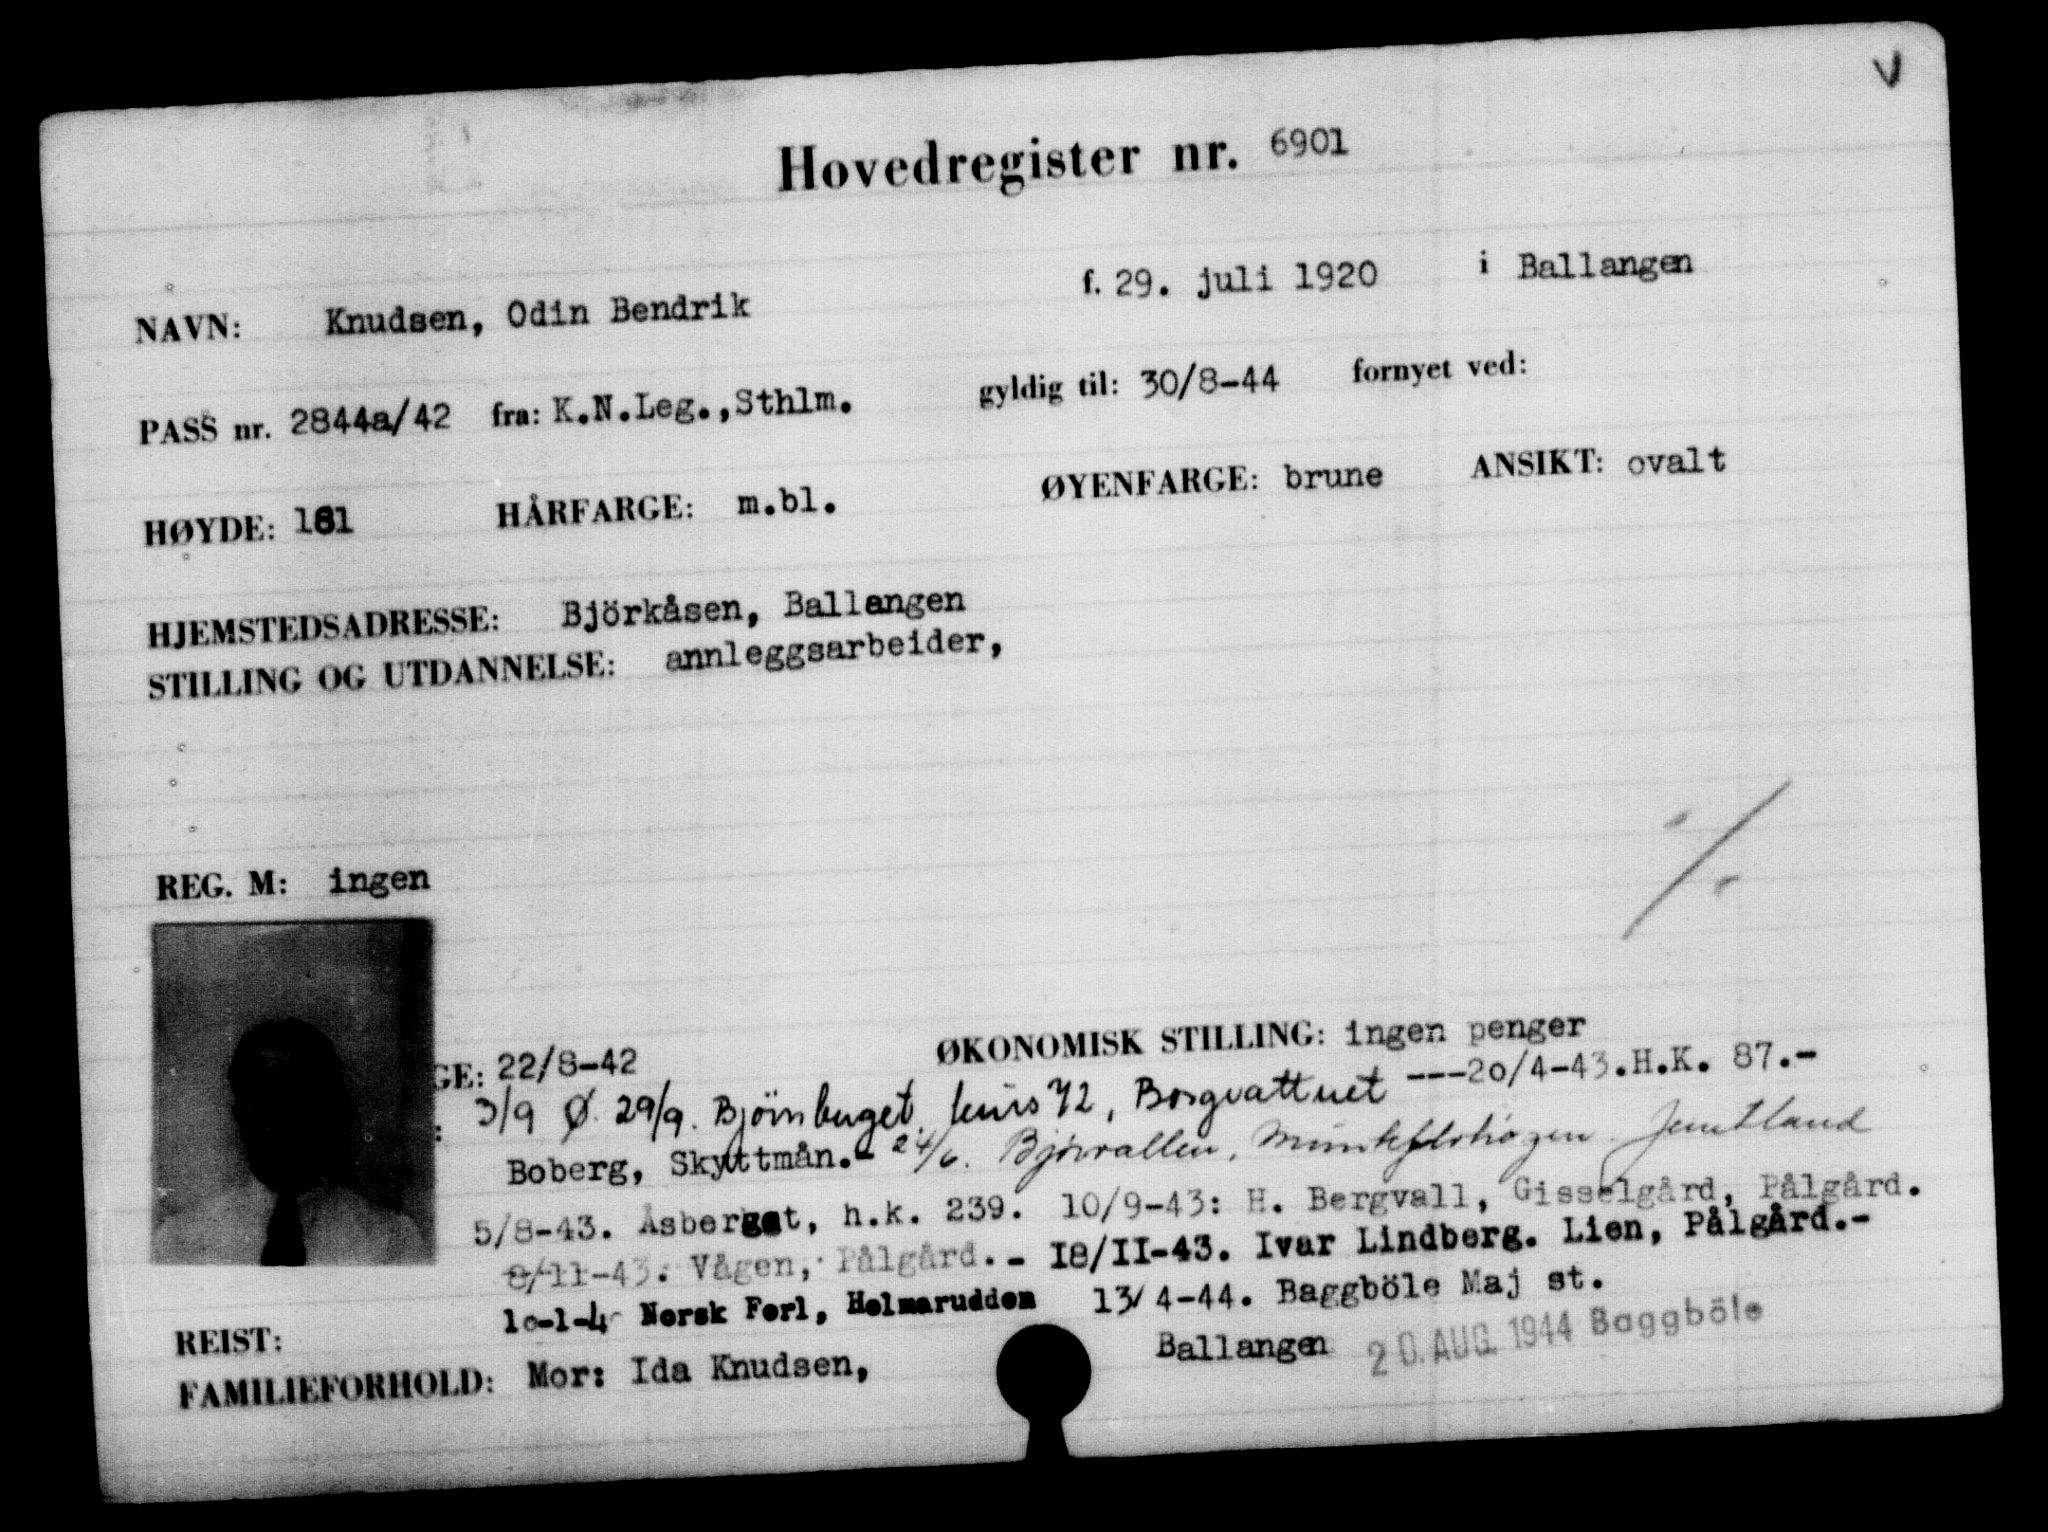 V
Hovedregister nr. 6901
NAVN: Knudsen, Odin Bendrik f. 29. juli 1920 i Ballangen
PASS nr. 2844a/42 fra: K.N.Leg.,Sthlm. gyldig til: 30/8-44 fornyet ved:
HØYDE: 161 HÅRFARGE: m.bl. ØYENFARGE: brune ANSIKT: ovalt
HJEMSTEDSADRESSE: Björkåsen, Ballangen
STILLING OG UTDANNELSE: annleggsarbeider,
REG. M: ingen
GE: 22/8-42 ØKONOMISK STILLING: ingen penger
: 3/9 Ø. 29/9. Björnbuget, 72, Borgvattnet ---20/4-43.H.K. 87.-
Boberg, Skyttmån.- 24/6. Björvallen, Jemtland
5/8-43. Åsberget, h.k. 239. 10/9-43: H. Bergvall, Gisselgård, Pålgård.
8/11-43. Vågen, Pålgård.- I8/II-43. Ivar Lindberg. Lien, Pålgård.-
10-1-4 Norsk Forl, Holmarudden 13/4-44. Baggböle Maj st.
REIST:
FAMILIEFORHOLD: Mor: Ida Knudsen, Ballangen 20. AUG. 1944 Baggböle